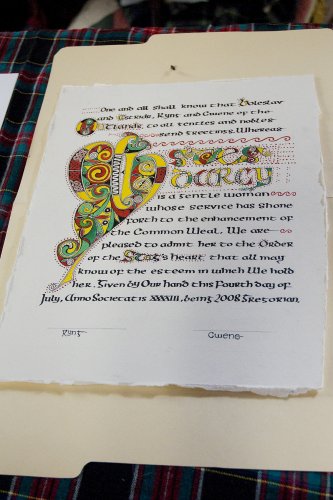 One and all shall know that Boleslav
and Astride, Kyng and Cwene of the
Outlands, to all gentles and nobles
send Greetings. Whereas
Darcy
is a gentle woman
whose service has shone
forth to the enhancement of
the Common Weal. We are
pleased to admit her to the Order
of the Stag's heart that all may
know of the esteem in which We hold
her. Given by Our Hand this Fourth day of
July, Anno Societatis XXXXIII, being 2008 Gregorian.
Kyng Cwene